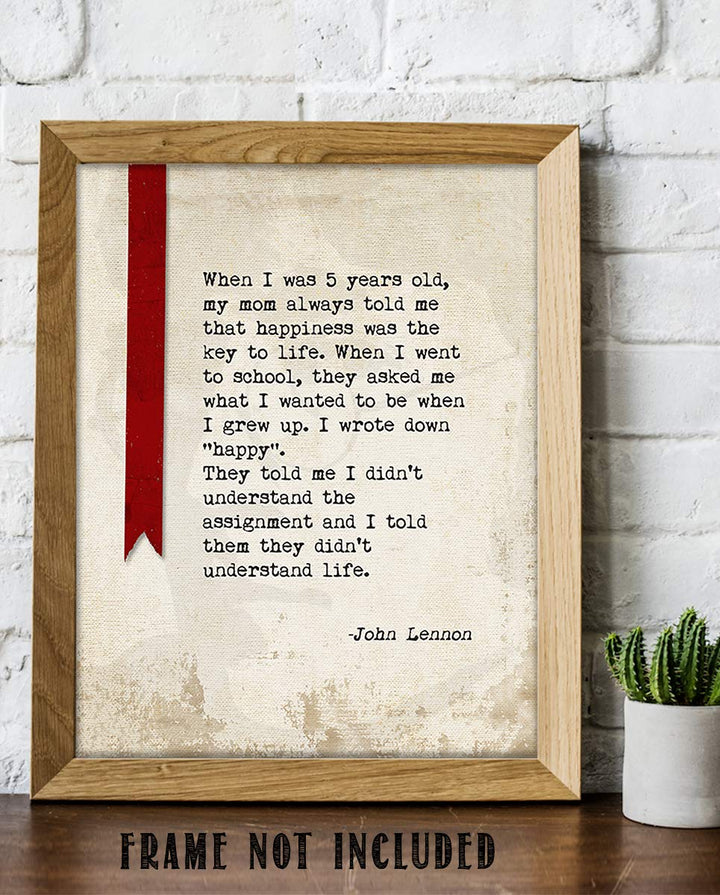 When I was 5 years old,
my mom always told me
that happiness was the
key to life. When I went
to school, they asked me
what I wanted to be when
I grew up. I wrote down
"happy".
They told me I didn't
understand the
assignment and I told
them they didn't
understand life.
-John Lennon
FRAME NOT INCLUDED